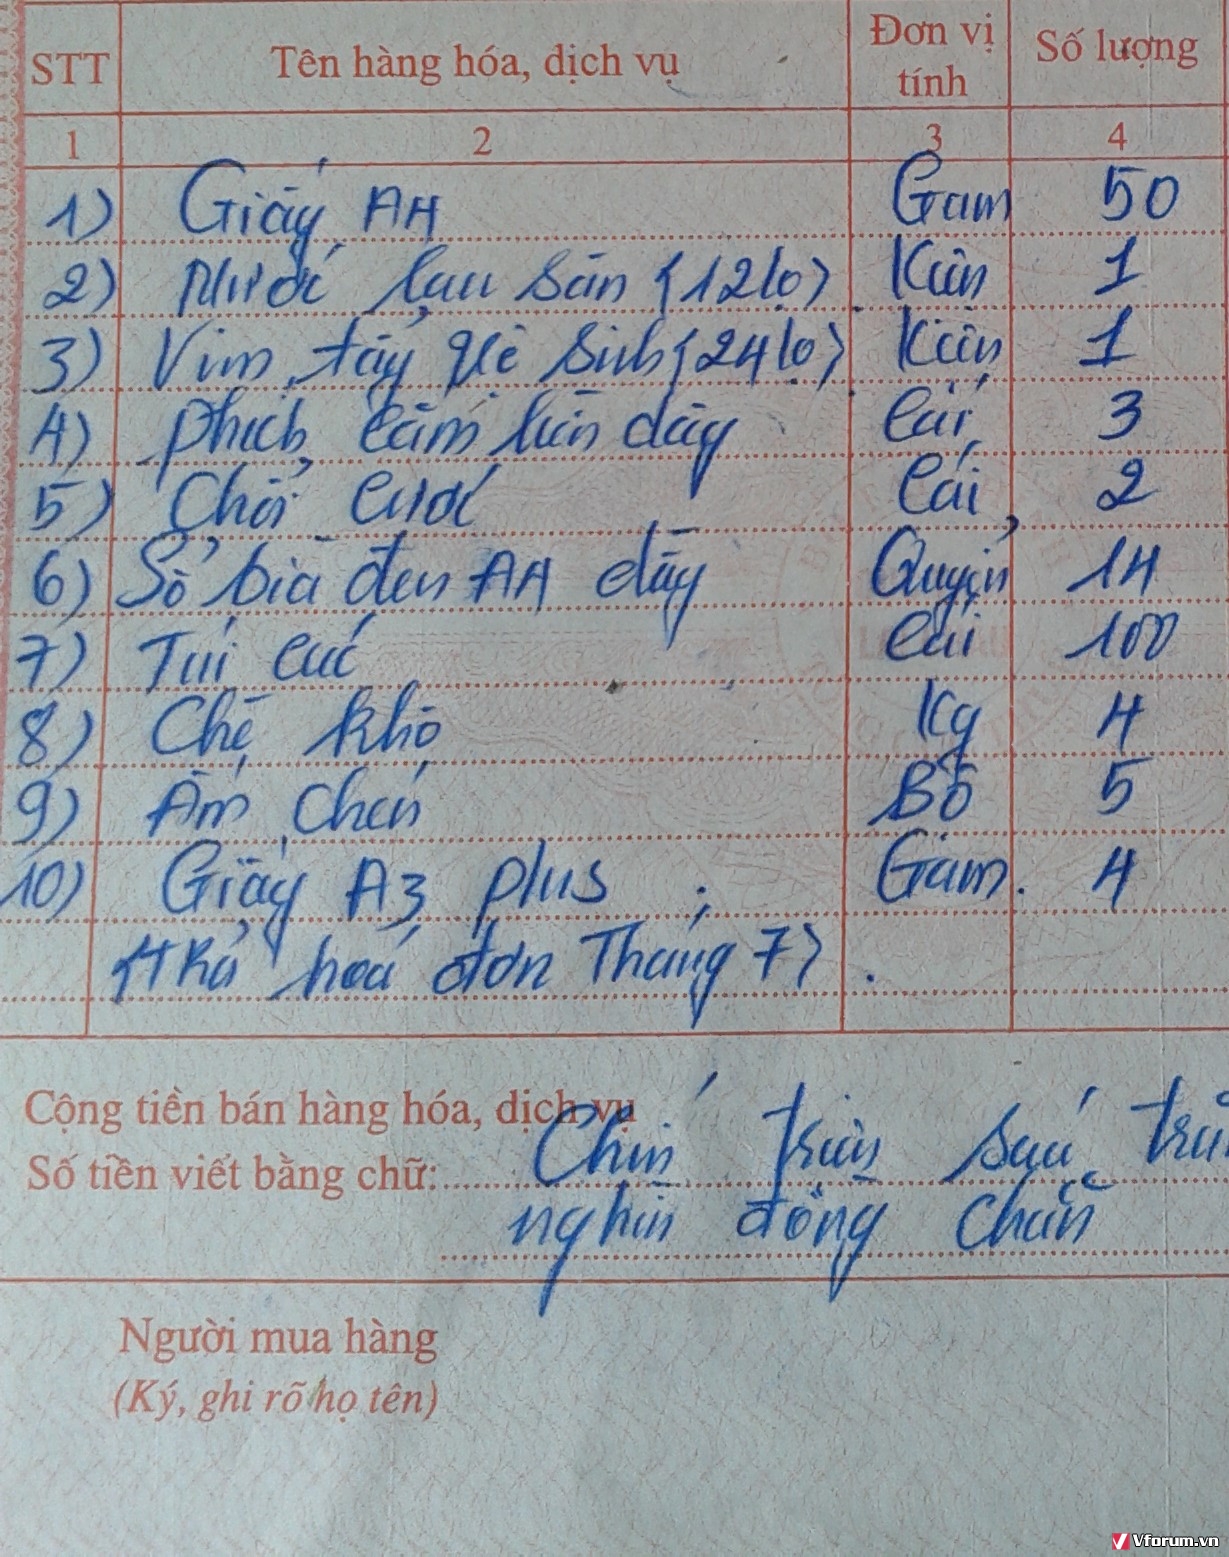 STT Tên hàng hóa, dịch vụ Đơn vị tính Số lượng
1 2 3 4
1) Giấy A4 Gam 50
2) Nước lau sàn (12lọ) Kiện 1
3) Vim tẩy vệ sinh (24lọ) Kiện 1
4) Phích cắm liền dây Cái 3
5) Chổi cước Cái 2
6) Sổ bìa đen A4 dày Quyển 14
7) Túi cúc Cái 100
8) Chè khô Kg 4
9) Ấm chén Bộ 5
10) Giấy A3 plus Gam 4
(Trả hoá đơn Tháng 7)
Cộng tiền bán hàng hóa, dịch vụ
Số tiền viết bằng chữ: Chín triệu sáu
nghìn đồng chẵn
Người mua hàng
(Ký, ghi rõ họ tên)
Vforum.vn